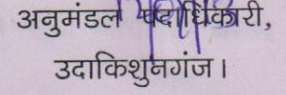 अनुमंडल पदाधिकारी,
उदाकिशुनगंज।